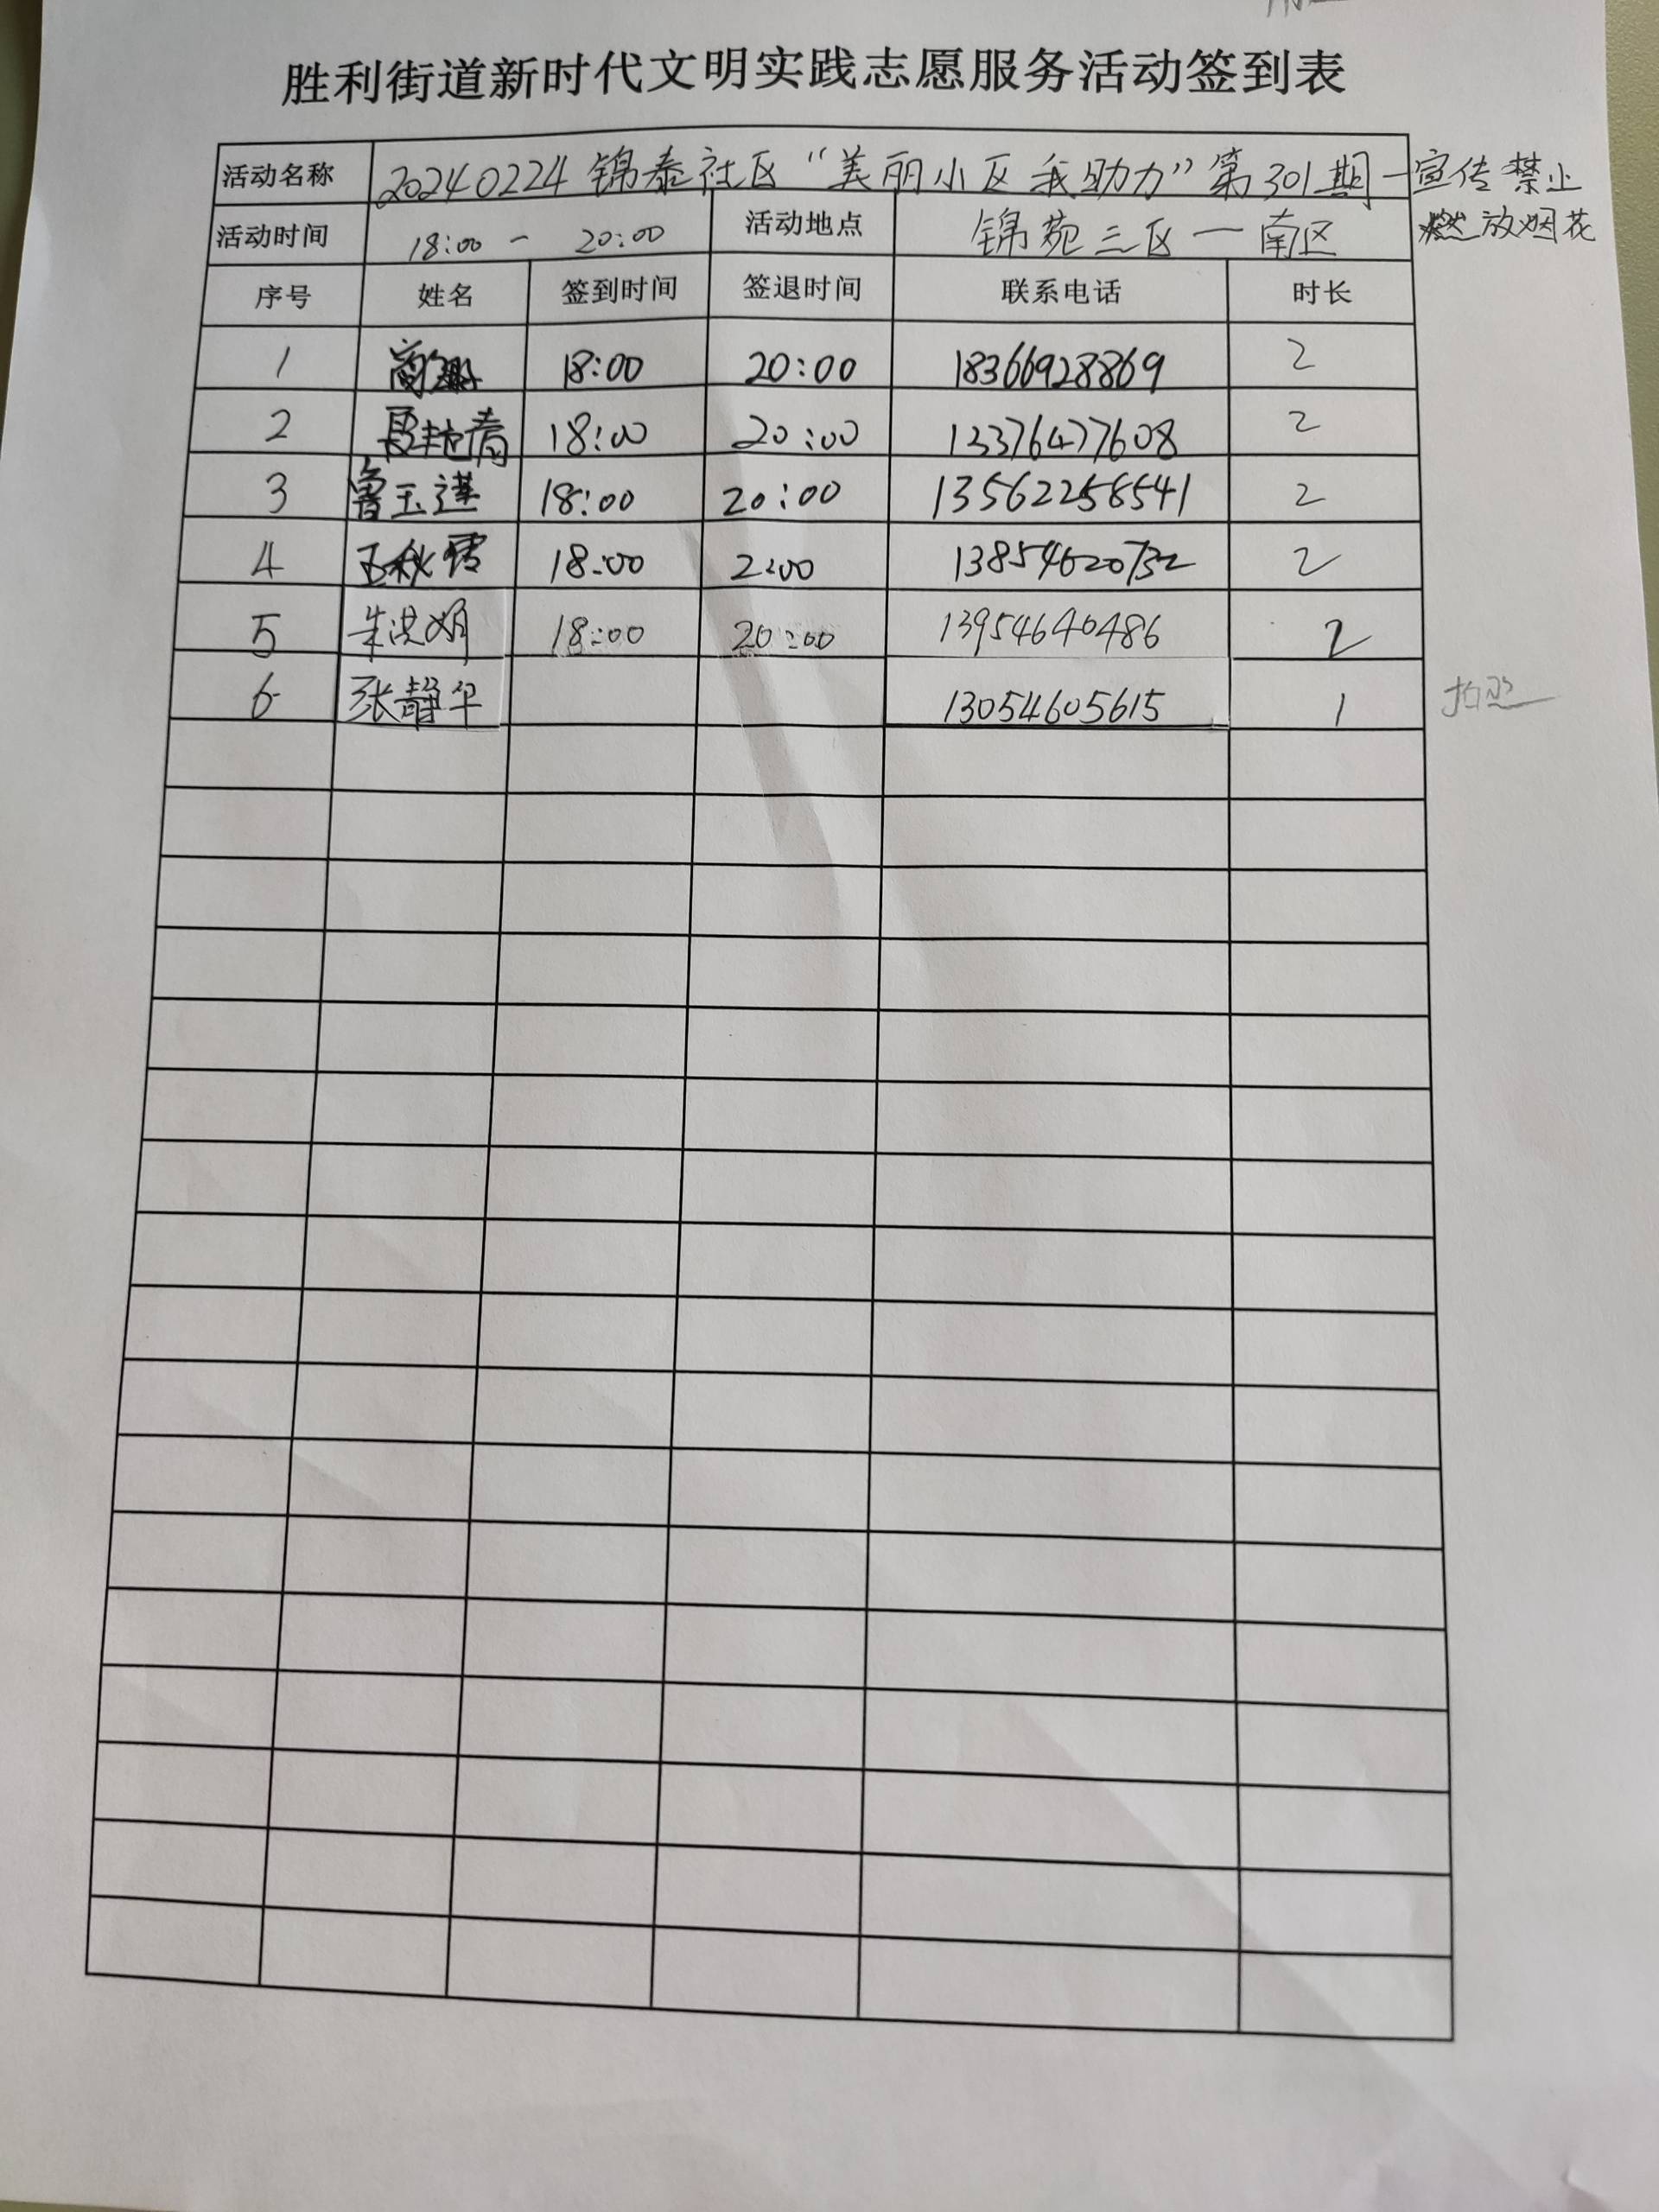 胜利街道新时代文明实践志愿服务活动签到表
活动名称 20240224锦泰社区“美丽小区我助力”第301期-宣传禁止
燃放烟花
活动时间 18:00 - 20:00 活动地点 锦苑三区一南区
序号 姓名 签到时间 签退时间 联系电话 时长
1 18:00 20:00 18366928869 2
2 18:00 20:00 13376477608 2
3 鲁玉莲 18:00 20:00 13562256541 2
4 王秋霞 18:00 2:00 13854620732 2
5 朱洪娟 18:00 20:00 13954640486 2
6 张静华 13054605615 1 拍照